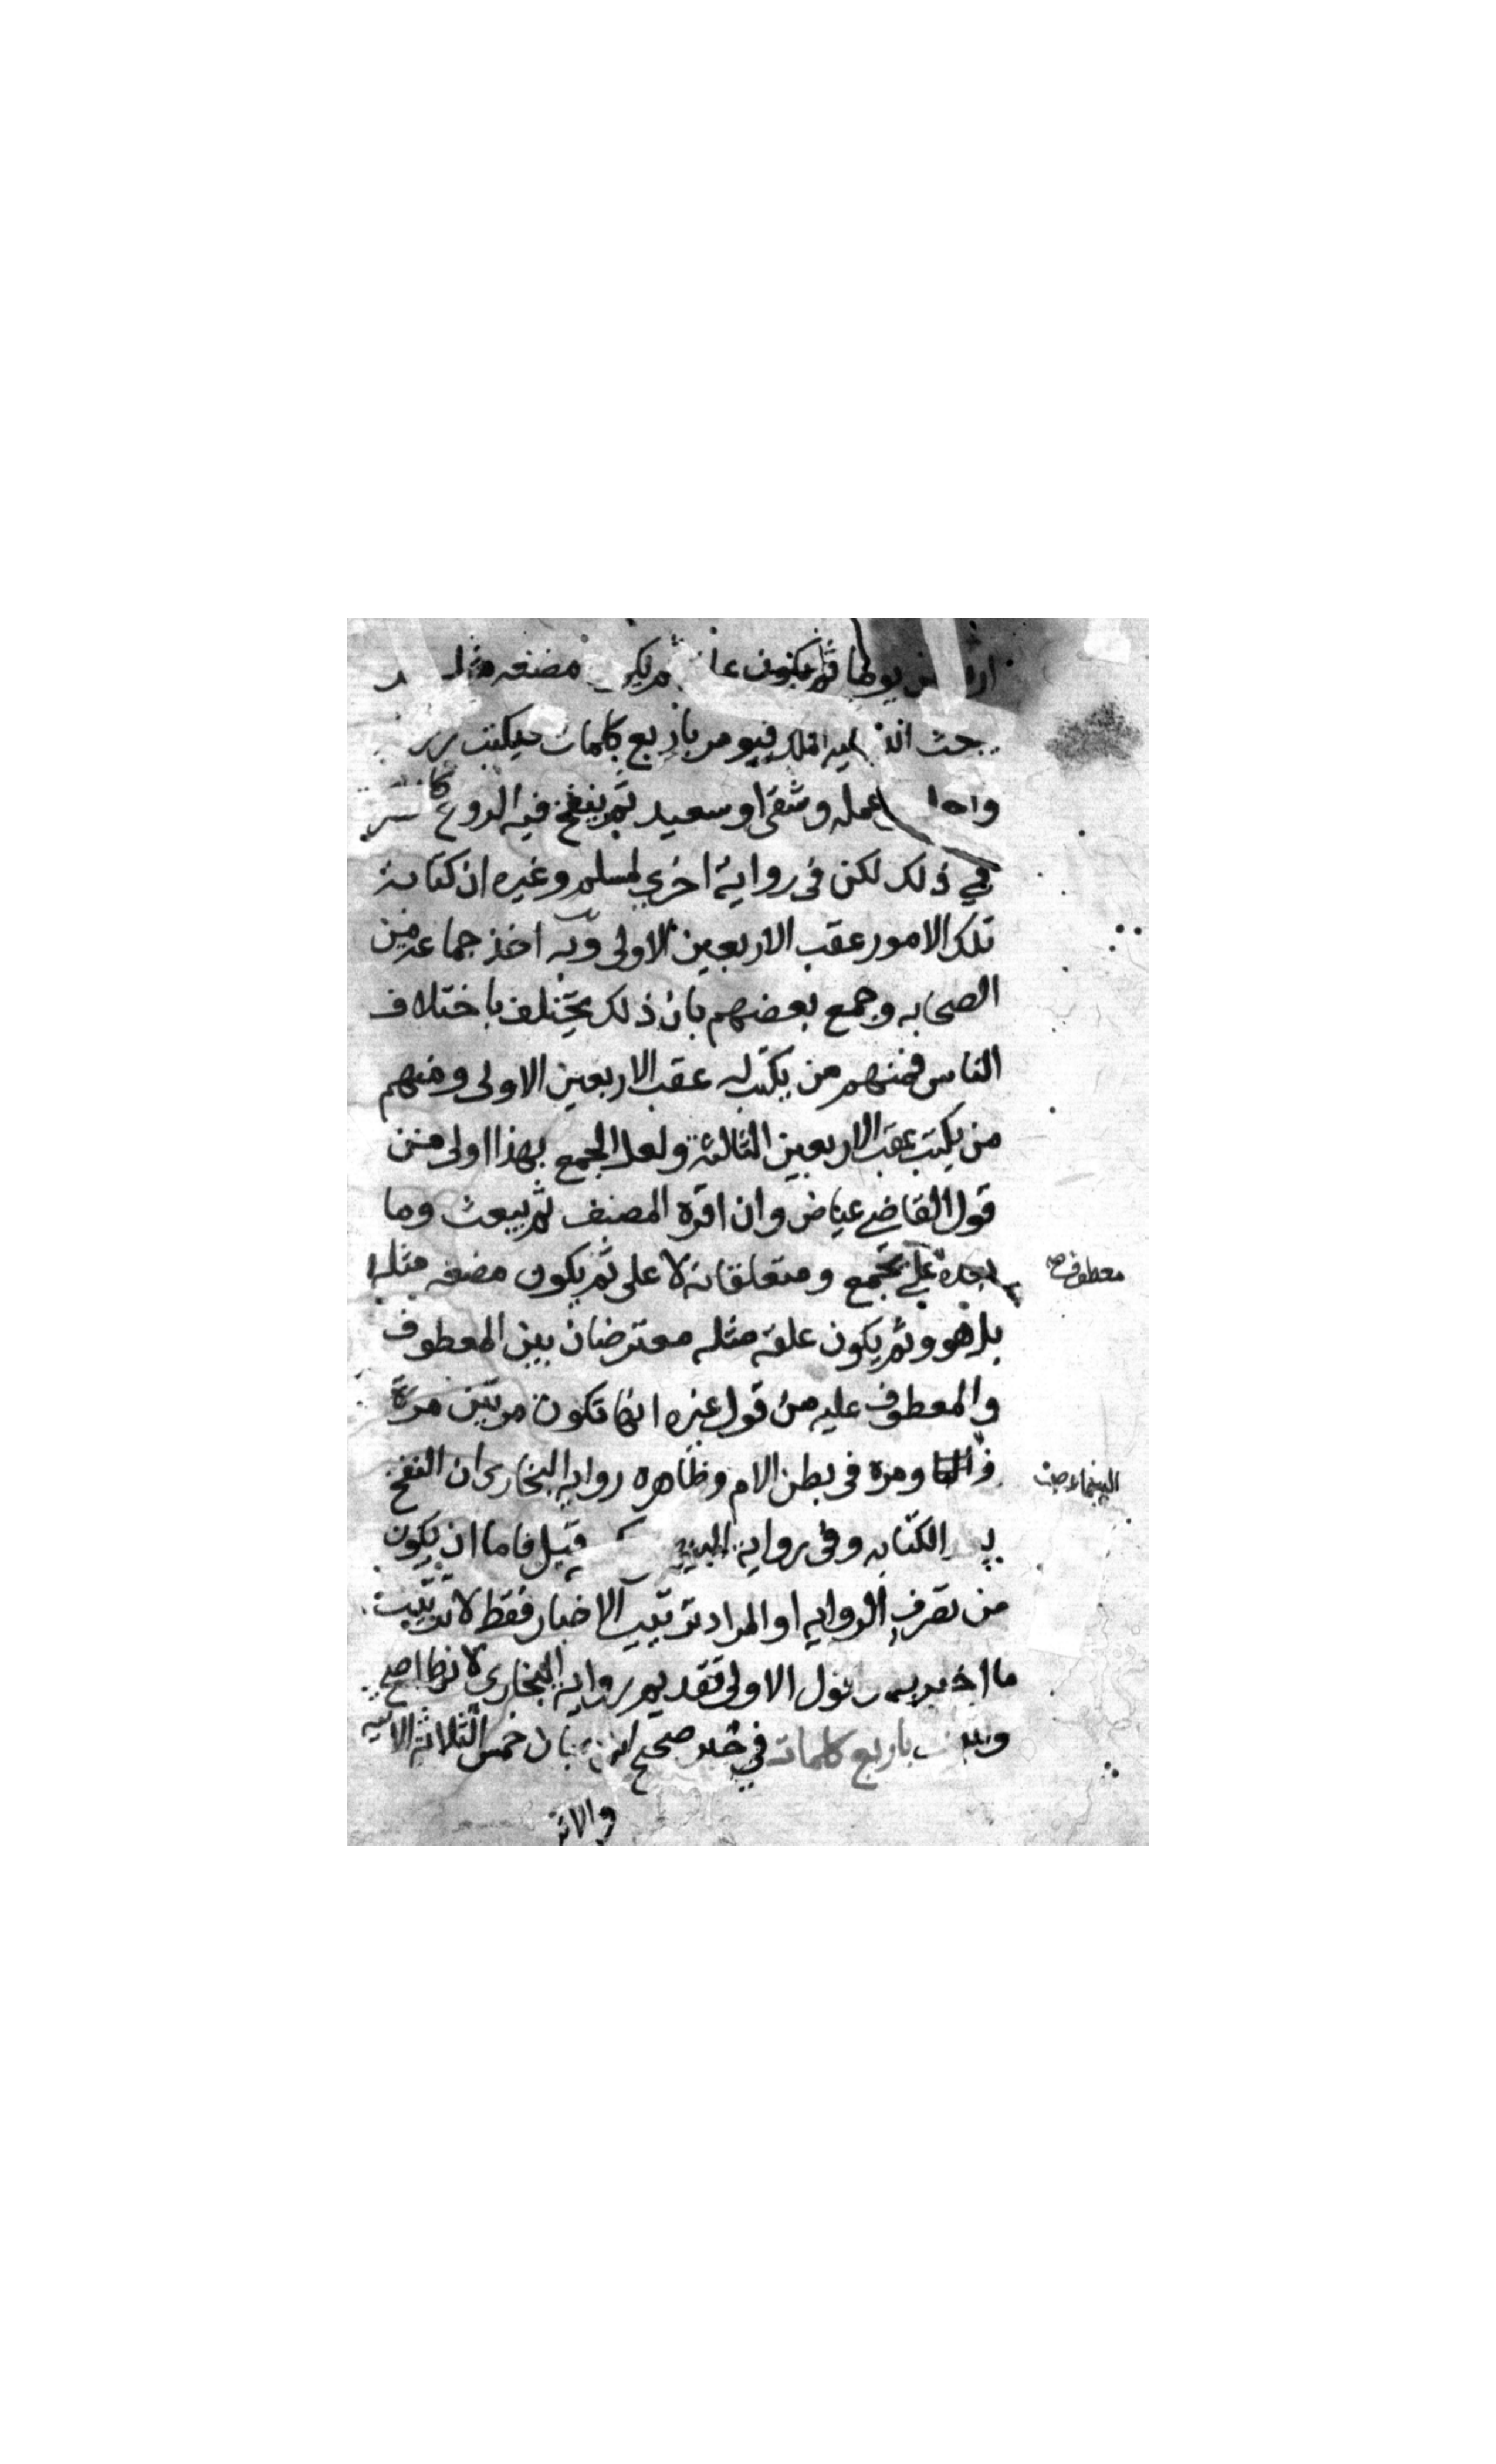 يوما ثم يكون ثم مضغه
الله اليه الملك فيومر باربع كلمات فيكتب
عمله وشقى او سعيد ثم ينفخ فيه الروح
في ذلك لكن فى رواية اخرى لمسلم وغيره ان كتابة
تلك الامور عقب الاربعين الاولى وبه اخذ جماعة من
الصحابه وجمع بعضهم بان ذلك يختلف باختلاف
الناس فمنهم من يكتب له عقب الاربعين الاولى ومنهم
من يكتب عقب الاربعين الثالثة ولعل الجمع بهذا اولى من
قول القاضي عياض وان اقره المصنف ثم يبعث وما
بعده على يجمع ومتعلقاته لا على ثم يكون مضغه مثله
معطوف
بل هو وثم يكون علقة مثله معترضان بين المعطوف
والمعطوف عليه من قول غيره انها تكون مرتين مرة
في ومرة فى بطن الام وظاهره رواية البخارى ان النفخ
الكتابه وفى رواية قبل فاما ان يكون
من تصرف الروايه او المراد ترتيب الاخبار فقط لا ترتيب
ما اخبر به الاولى تقديم رواية البخارى لانها اصح
باربع كلمات في خبر صحيح خمس الثلاثة الاتيه
والاثر